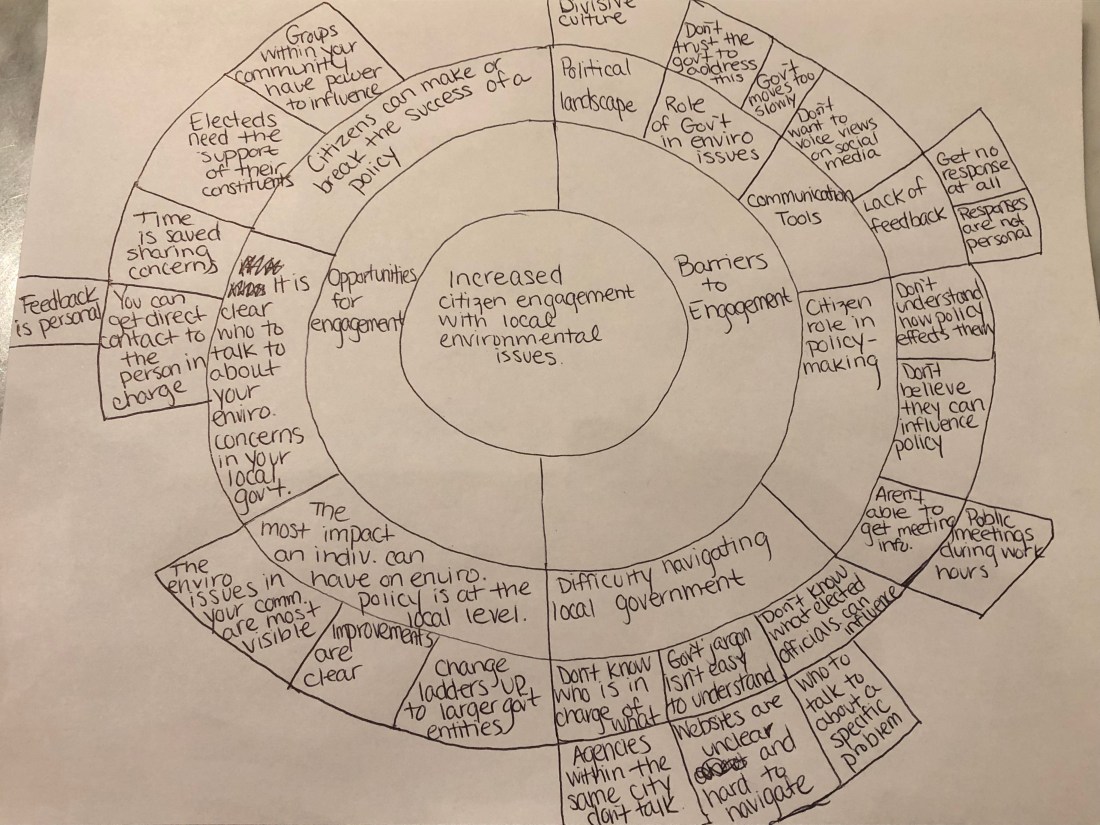 Increased
citizen engagement
with local
environmental
issues.
Barriers
to
Engagement
Divisive
culture
Political
landscape
Don't
trust the
gov't to
address
this
Gov't
moves too
slowly
Role
of Gov't
in enviro
issues
Don't
want to
voice views
on social
media
Communication
Tools
Lack of
feedback
Get no
response
at all
Responses
are not
personal
Citizen
role in
policy-
making
Don't
understand
how policy
effects them
Don't
believe
they can
influence
policy
Aren't
able to
get meeting
info.
Public
meetings
during work
hours
Difficulty navigating
local government
Don't know
what elected
officials can
influence
Gov't jargon
isn't easy
to understand
Don't know
who is in
charge of
what
Who to
talk to
about a
specific
problem
Websites are
unclear
and
hard to
navigate
Agencies
within the
same city
don't talk.
Opportunities
for
engagement
Citizens can make or
break the success of a
policy
Groups
within your
community
have power
to influence
Electeds
need the
support
of their
constituents
Time
is saved
sharing
concerns
It is
clear
who to
talk to
about
your
enviro.
concerns
in your
local
gov't.
You can
get direct
contact to
the
person in
charge
Feedback
is personal
The
most impact
an indiv. can
have on enviro.
policy is at the
local level.
The
enviro
issues in
your comm.
are most
visible
Improvements
are
clear
Change
ladders up
to larger gov't
entities